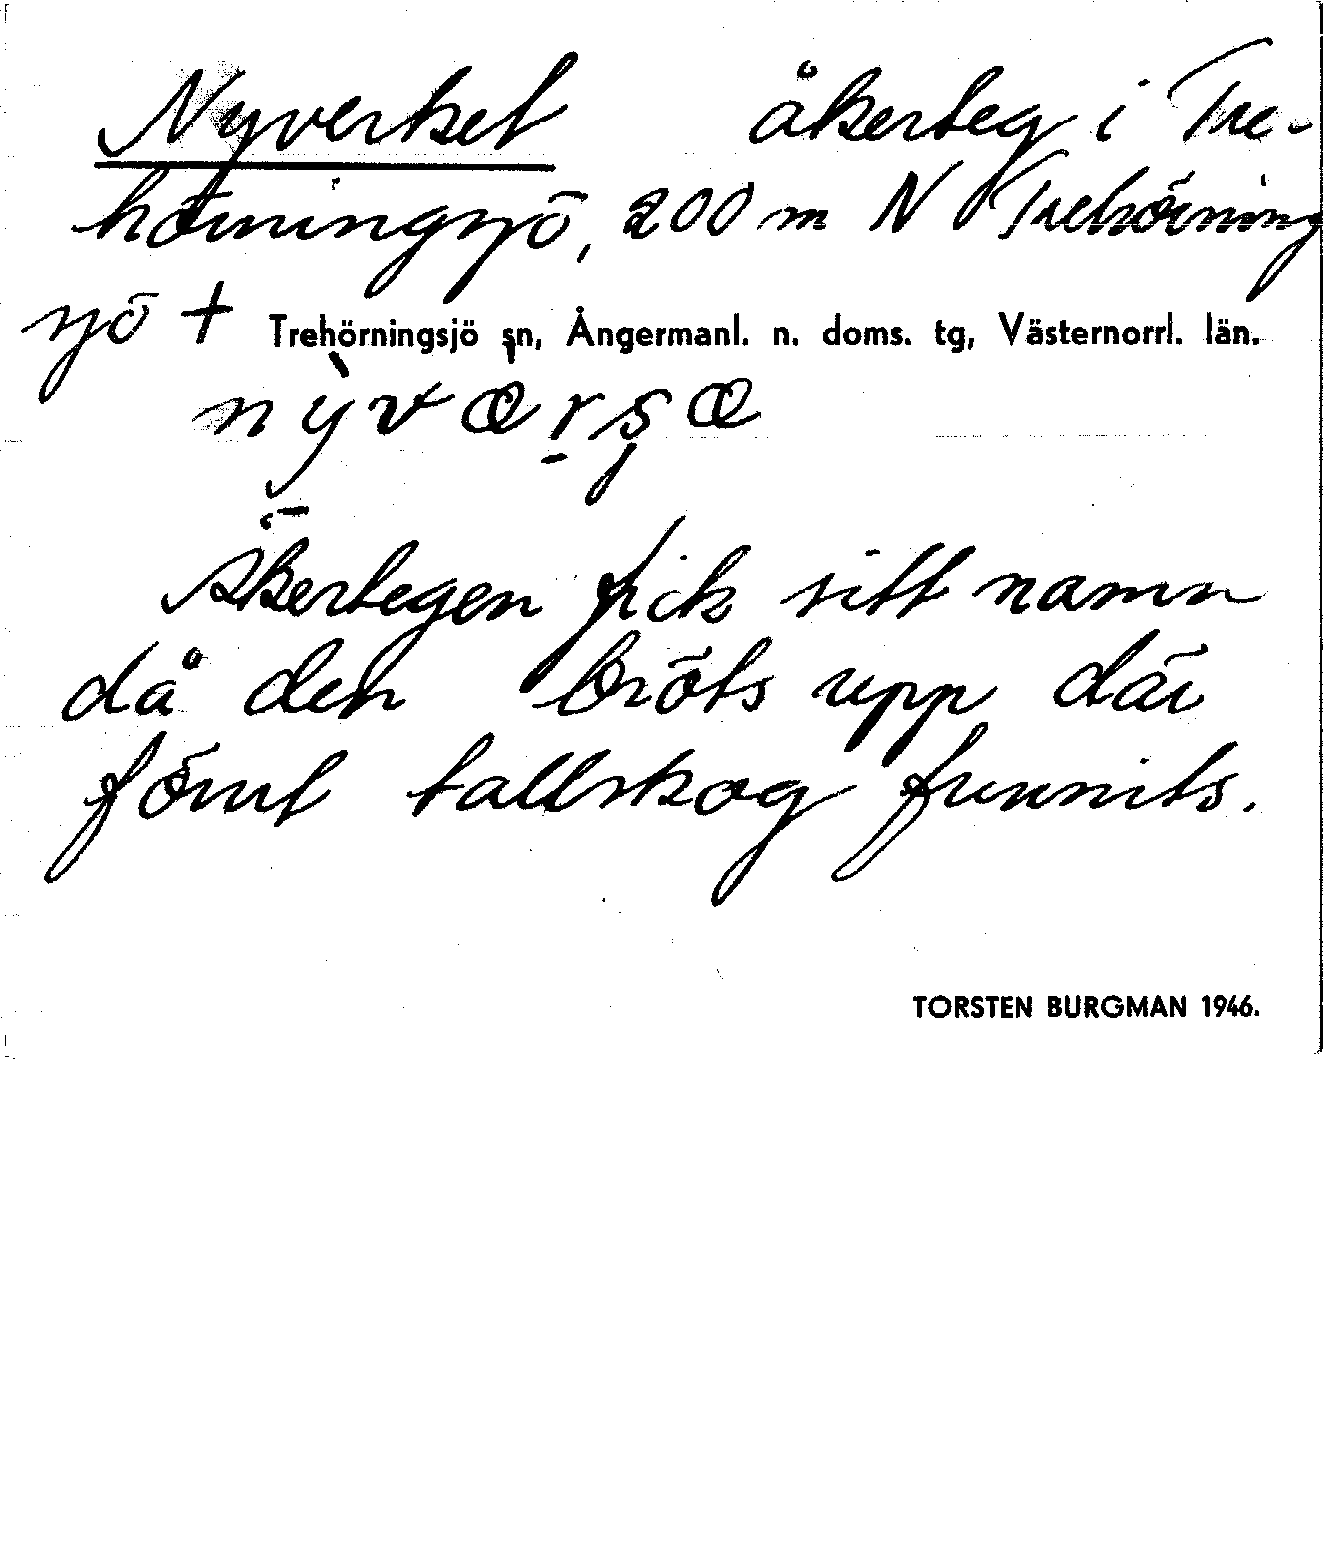 Nyverket åkerteg i Tre-
hörningsjö, 200 m N Trehörning
sjö +
Trehörningsjö sn, Ångermanl. n. doms. tg, Västernorrl. län.
Åkertegen fick sitt namn
då den bröts upp där
förut tallskog funnits.
TORSTEN BURGMAN 1946.